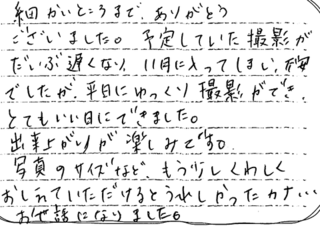 細かいところまで、ありがとう
ございました。予定していた撮影が
だいぶ遅くなり、11月に入ってしまい、不安
でしたが、平日にゆっくり撮影ができ、
とてもいい日にできました。
出来上がりが楽しみです。
写真のサイズなど、もう少しくわしく
おしえていただけるとうれしかったカナ…
お世話になりました。